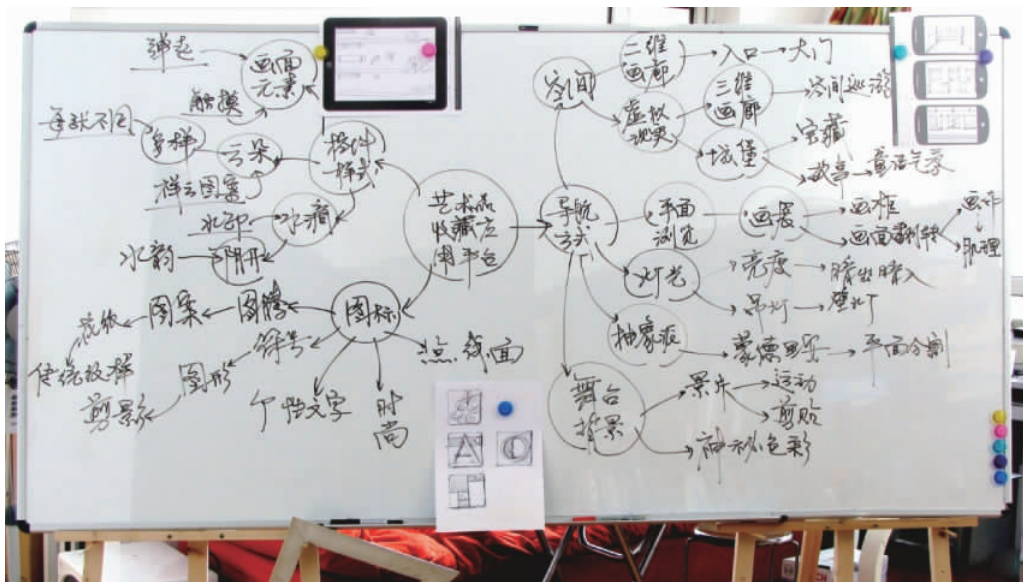 弹起
画面
元素
触摸
每朵不同
多样
云朵
控件
样式
祥云图案
水印
水滴
水韵
阴刑
艺术品
收藏应
用平台
图标
图腾
图案
传统纹样
符号
图形
剪影
个性文字
时尚
点 线 面
A
导航
方式
空间
二维
画廊
入口
大门
虚拟
现实
三维
画廊
空间巡游
城堡
宝藏
故事
童话气氛
平面
浏览
画展
画框
画面翻转
画布
肌理
灯光
亮度
瞬出瞬入
吊灯
壁灯
抽象派
蒙德里安
平面分割
舞台
背景
景片
运动
剪贴
神秘色彩